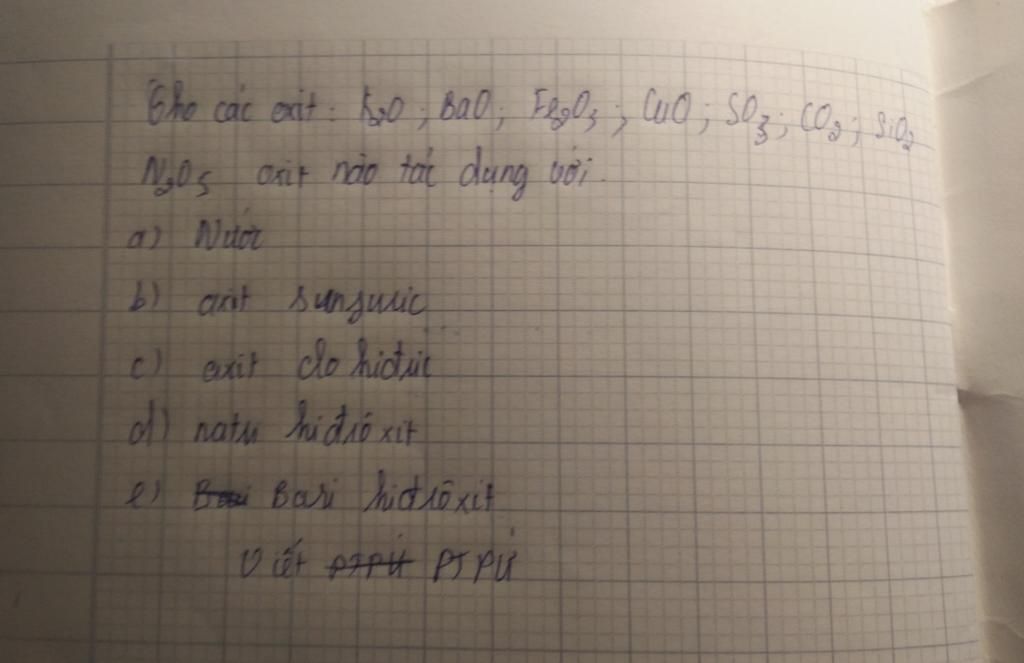 Cho các oxit: K2O; BaO; Fe2O3; CuO; SO3; CO2; SiO2
N2O5 oxit nào tác dụng với.
a) Nước
b) axit sunfuric
c) axit clo hiđric
d) natri hiđrôxit
e) Bari hiđrôxit
Viết PTPƯ